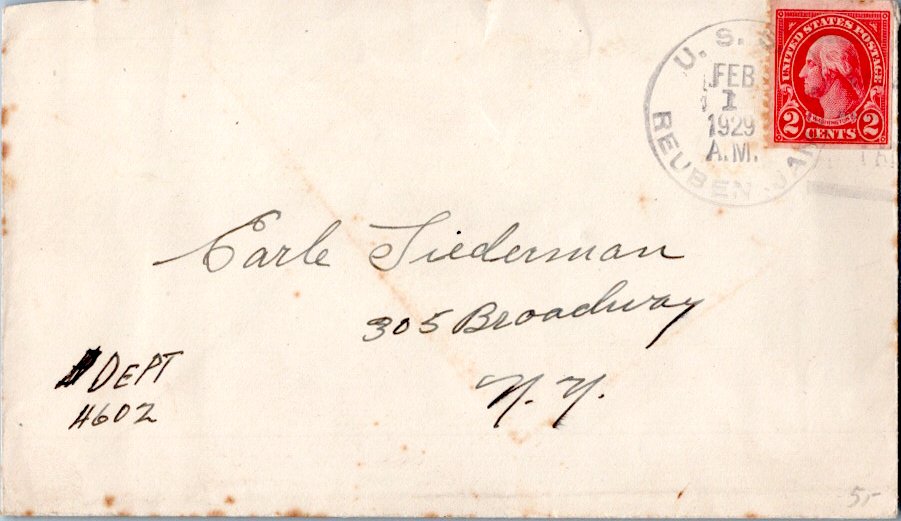 U. S.
FEB
1
1929
A.M.
REUBEN JAM
UNITED STATES POSTAGE
WASHINGTON
2 CENTS 2
Earle Tiederman
305 Broadway
N. Y.
DEPT
4602
5-